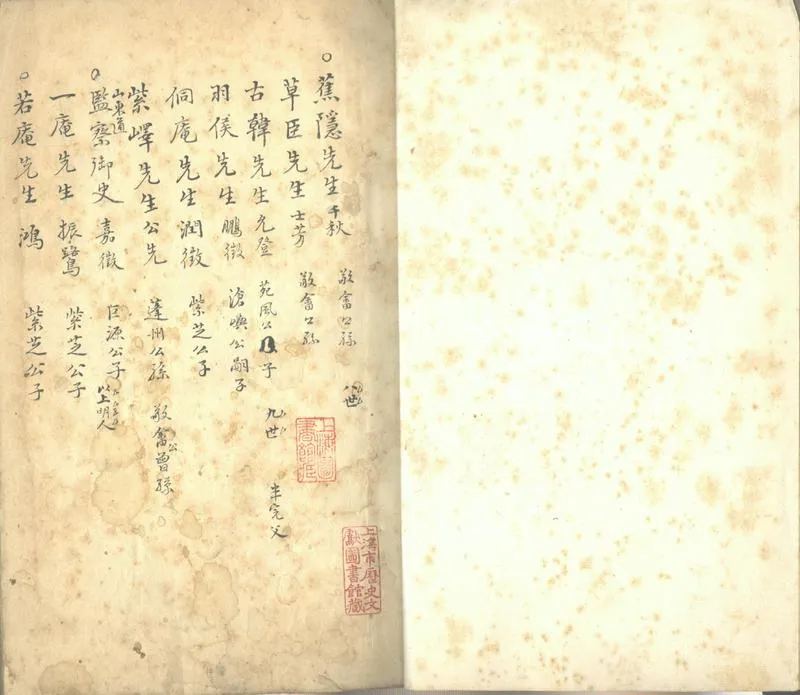 蕉隱先生 千秋 敬畬公孫 八世
草臣先生 士芳 敬畬公孫
古韓先生 允登 苑風公子 九世 半完父
羽侯先生 鵬徵 滄嶼公嗣子
侗庵先生 潤徵 紫芝公子
紫嶧先生 公先 蓬州公孫 敬畬公曾孫
山東道監察御史 嘉徵 巨源公子 以上明人
一庵先生 振鷺 紫芝公子
若庵先生 鴻 紫芝公子
上海圖書館藏
上海市歷史文獻圖書館藏